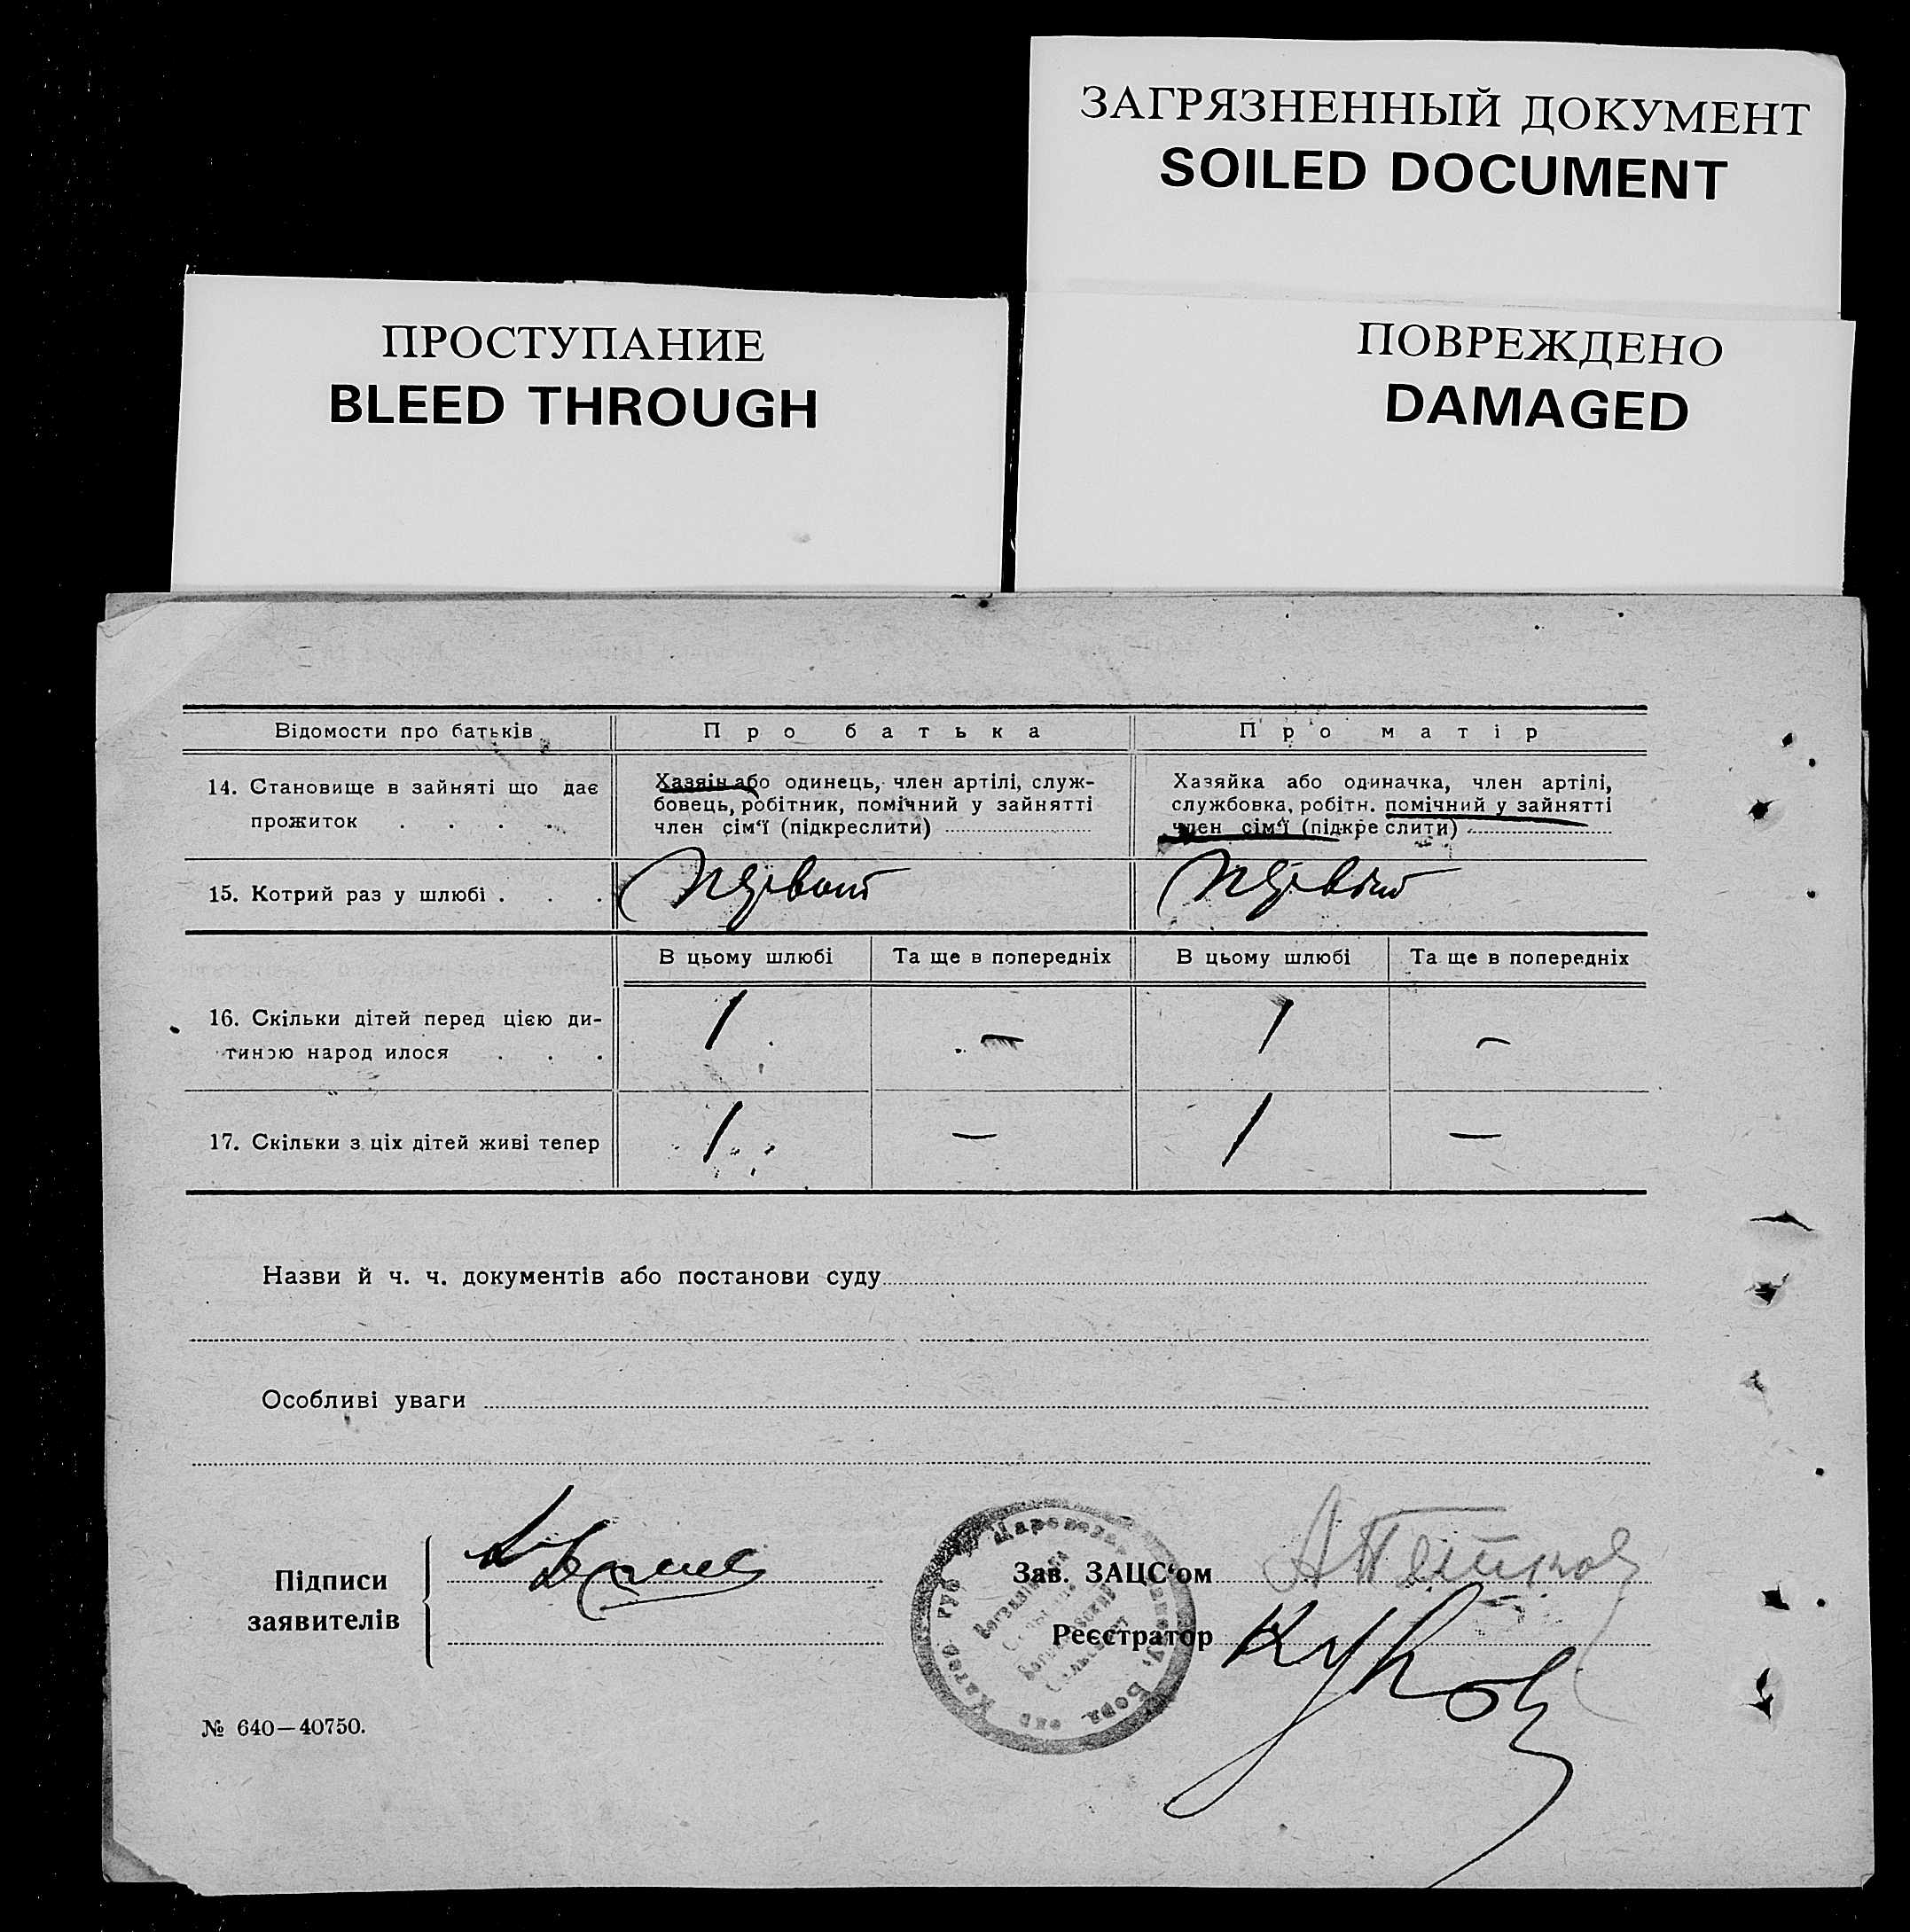 ЗАГРЯЗНЕННЫЙ ДОКУМЕНТ
SOILED DOCUMENT
ПРОСТУПАНИЕ
BLEED THROUGH
ПОВРЕЖДЕНО
DAMAGED
Відомости про батьків
Про батька
Про матір
14. Становище в зайняті що дає
прожиток . . . .
Хазяін або одинець, член артілі, служ-
бовець, робітник, помічний у зайнятті
член сім‘ї (підкреслити)
Хазяйка або одиначка, член артілі,
службовка, робітн. помічний у зайнятті
член сім‘ї (підкреслити)
15. Котрий раз у шлюбі . . .
В цьому шлюбі
Та ще в попередніх
В цьому шлюбі
Та ще в попередніх
16. Скільки дітей перед цією ди-
тиною народ илося . . .
1
—
1
—
17. Скільки з ціх дітей живі тепер
1
—
1
—
Назви й ч. ч. документів або постанови суду
Особливі уваги
Підписи
заявителів
Зав. ЗАЦС‘ом
Реєстратор
№ 640—40750.